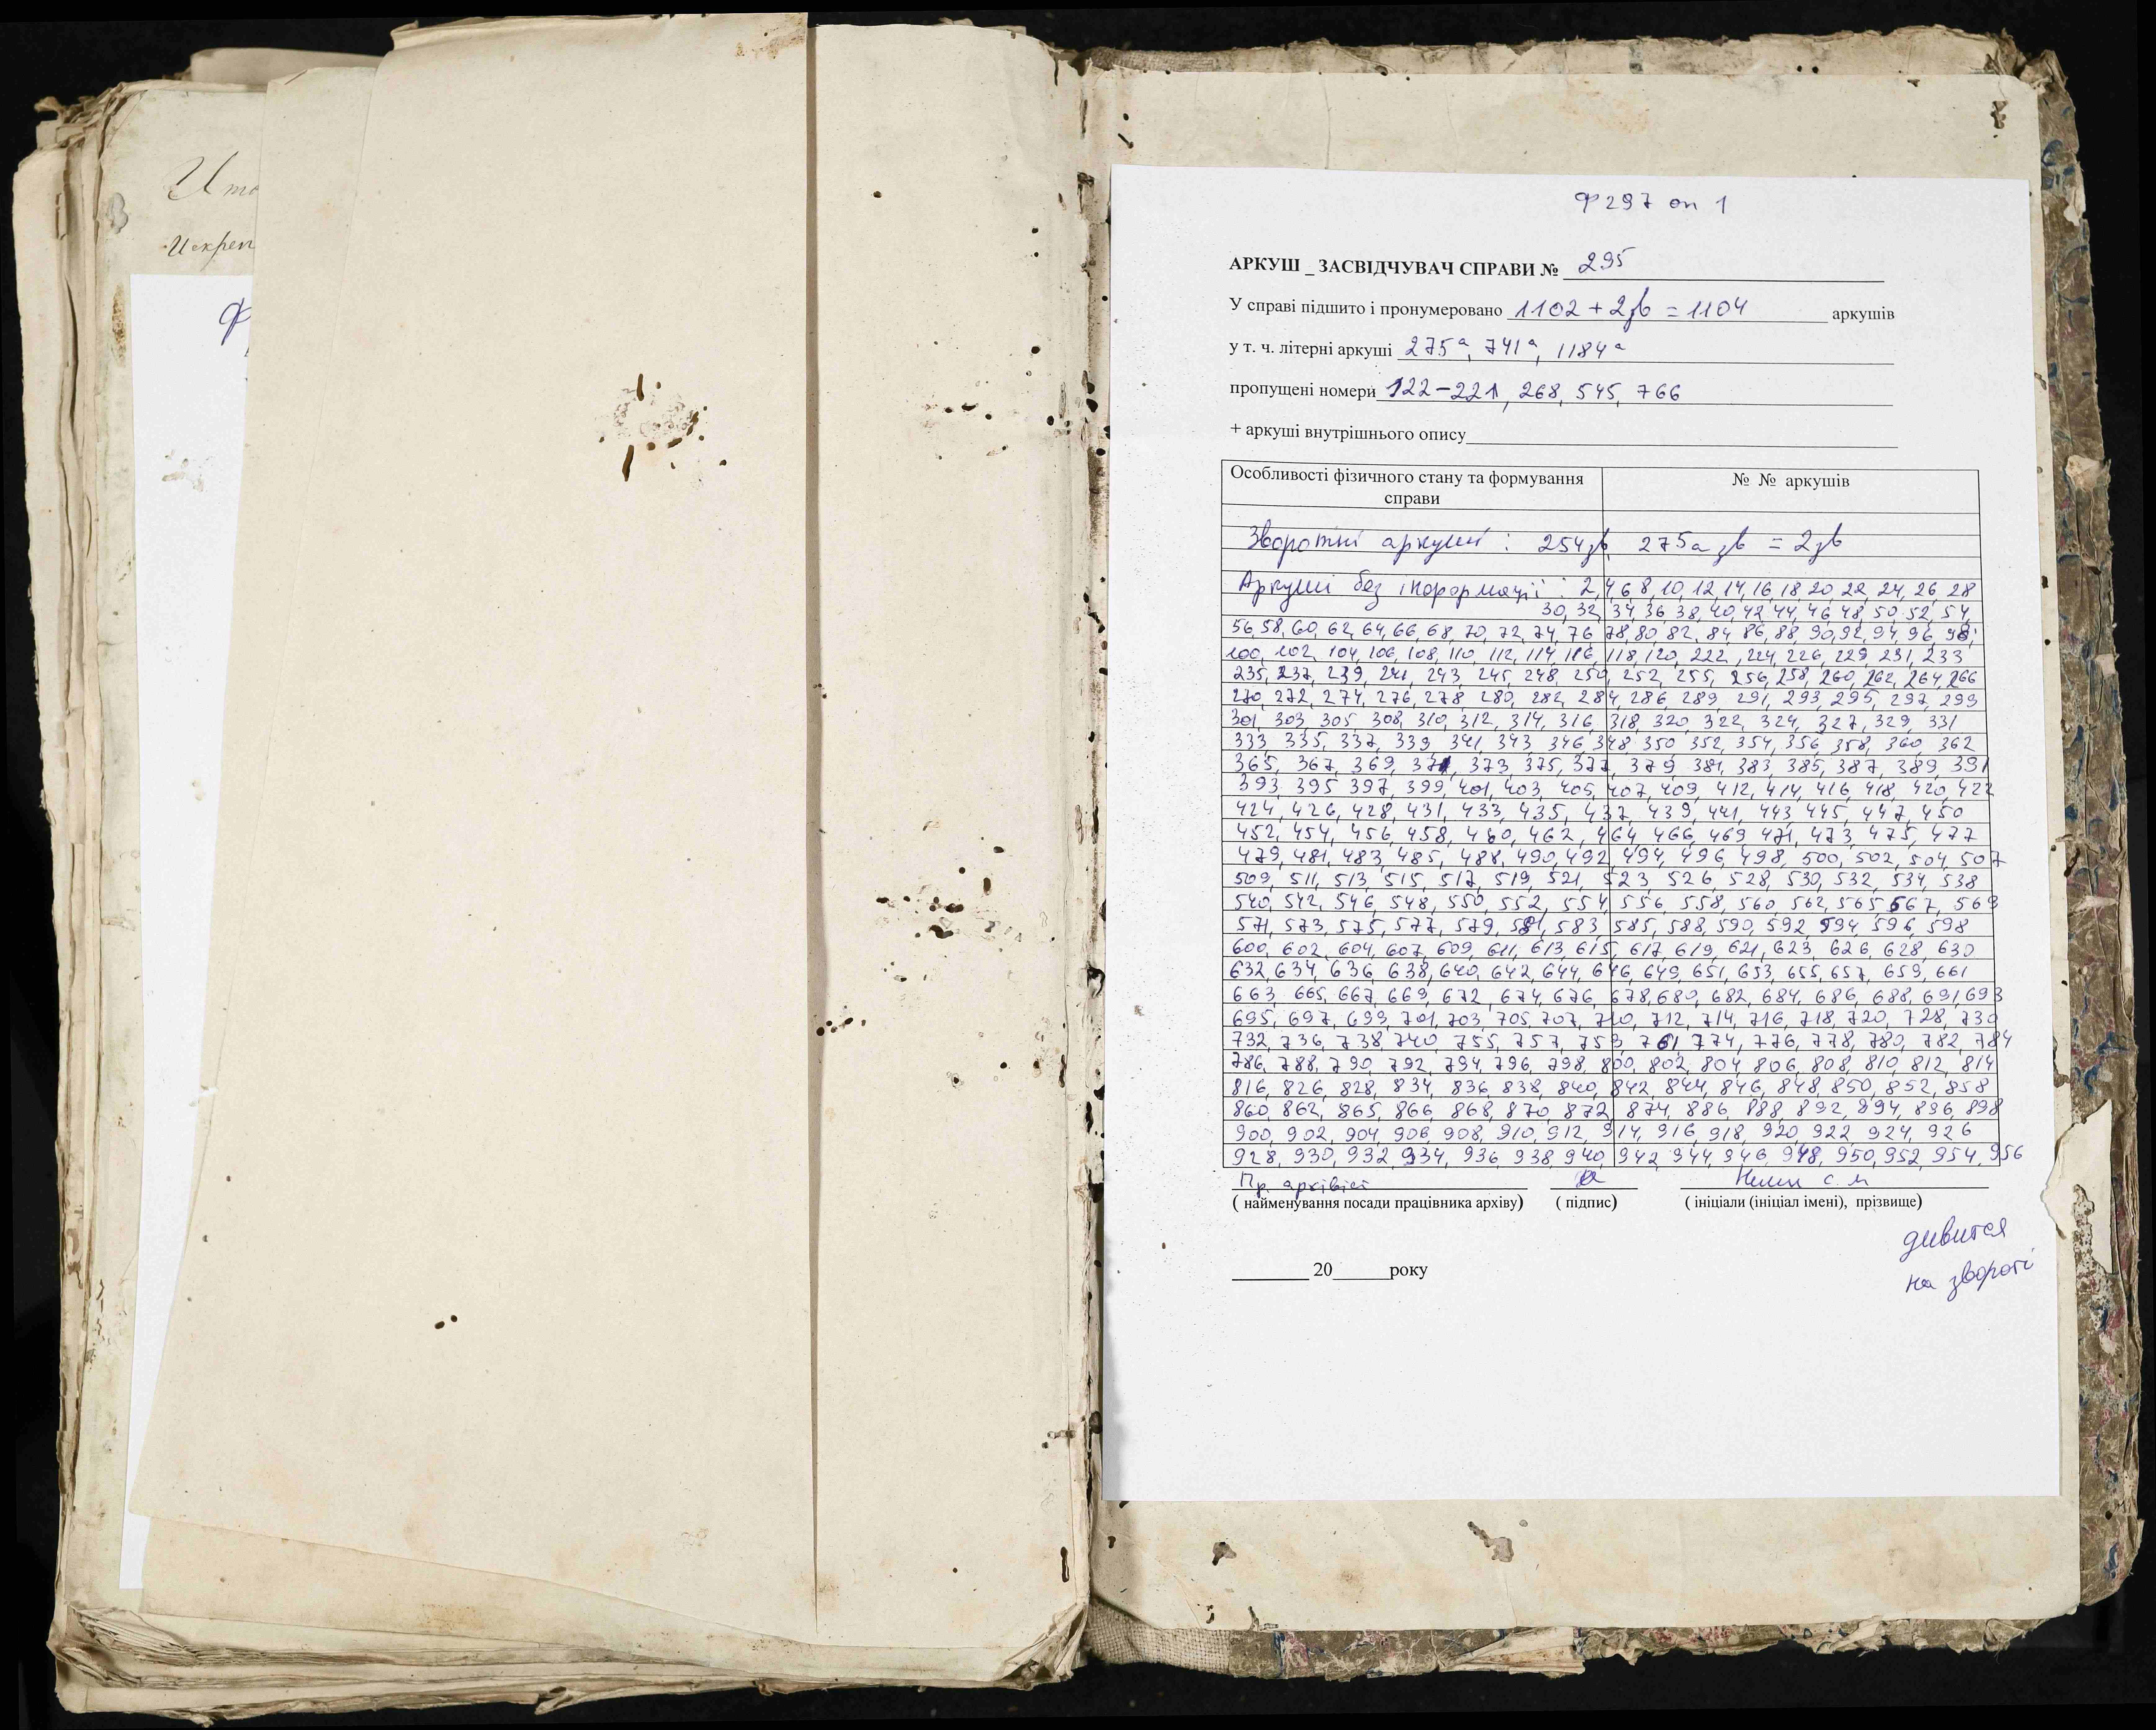 Ито
Искреп
Ф
Ф 297 оп 1
АРКУШ _ ЗАСВІДЧУВАЧ СПРАВИ № 295
У справі підшито і пронумеровано 1102 + 2зв = 1104 аркушів
у т. ч. літерні аркуші 275а, 741а, 1184а
пропущені номери 122-221, 268, 545, 766
+ аркуші внутрішнього опису
Особливості фізичного стану та формування справи
№ № аркушів
Зворотні аркуші: 254зв, 275а зв = 2зв
Аркуші без інформації: 2,4,6,8,10,12,14,16,18,20,22,24,26,28
30,32,34,36,38,40,42,44,46,48,50,52,54,
56,58,60,62,64,66,68,70,72,74,76,78,80,82,84,86,88,90,92,94,96,98,
100,102,104,106,108,110,112,114,116,118,120,222,224,226,229,231,233
235,237,239,241,243,245,248,250,252,255,256,258,260,262,264,266
270,272,274,276,278,280,282,284,286,289,291,293,295,297,299
301,303,305,308,310,312,314,316,318,320,322,324,327,329,331
333,335,337,339,341,343,346,348,350,352,354,356,358,360,362
365,367,369,371,373,375,377,379,381,383,385,387,389,391
393,395,397,399,401,403,405,407,409,412,414,416,418,420,422
424,426,428,431,433,435,437,439,441,443,445,447,450
452,454,456,458,460,462,464,466,469,471,473,475,477
479,481,483,485,488,490,492,494,496,498,500,502,504,507
509,511,513,515,517,519,521,523,526,528,530,532,534,538
540,542,546,548,550,552,554,556,558,560,562,565,567,569
571,573,575,577,579,581,583,585,588,590,592,594,596,598
600,602,604,607,609,611,613,615,617,619,621,623,626,628,630
632,634,636,638,640,642,644,646,649,651,653,655,657,659,661
663,665,667,669,672,674,676,678,680,682,684,686,688,691,693
695,697,699,701,703,705,707,710,712,714,716,718,720,728,730
732,736,738,740,755,757,759,761,774,776,778,780,782,784
786,788,790,792,794,796,798,800,802,804,806,808,810,812,814
816,826,828,834,836,838,840,842,844,846,848,850,852,858
860,862,865,866,868,870,872,874,886,888,892,894,896,898
900,902,904,906,908,910,912,914,916,918,920,922,924,926
928,930,932,934,936,938,940,942,944,946,948,950,952,954,956
Пр. архівіст
( найменування посади працівника архіву) ( підпис) ( ініціали (ініціал імені), прізвище)
дивится
на звороті
20 року